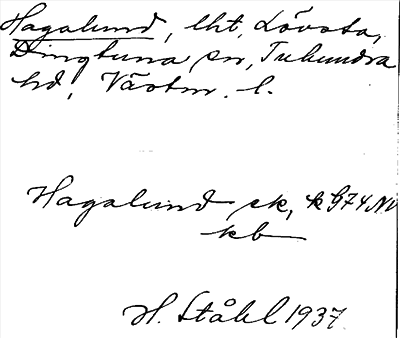 Hagalund, lht, Lövsta,
Dingtuna sn, Tuhundra
hd, Västm. l.
Hagalund ek, k G74 NV
kb
H. Ståhl 1937